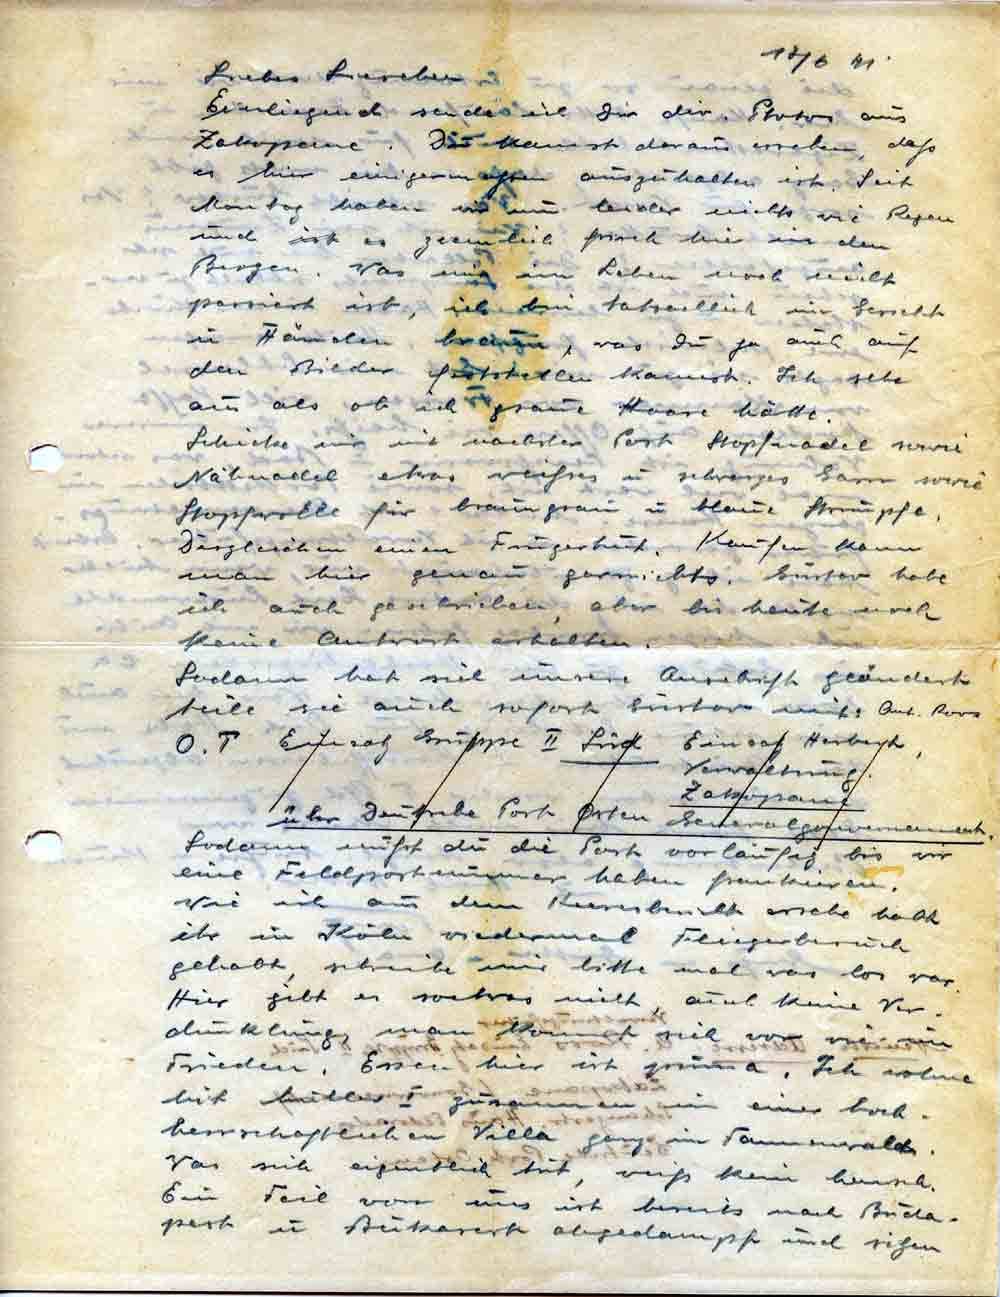 17/6 41.
Liebes Lieschen
Einliegend sende ich Dir div. Photos aus
Zakopane. Du kannst daraus ersehen, dass
es hier einigermassen auszuhalten ist. Seit
Montag haben wir nun leider nichts wie Regen
und ist es ziemlich frisch hier in den
Bergen. Was mir im Leben noch nicht
passiert ist, ich bin tatsächlich im Gesicht
u Händen braun, was Du ja auch auf
den Bilder feststellen kannst. Ich sehe
aus als ob ich graue Haare hätte.
Schicke mir mit nächster Post Stopfnadel sowie
Nähnadel etwas weisses u schwarzes Garn sowie
Stopfwolle für braungrau u blaue Strümpfe.
Desgleichen einen Fingerhut. Kaufen kann
man hier genau garnichts. Gustav habe
ich auch geschrieben, aber bis heute noch
keine Antwort erhalten.
Sodann hat sich unsere Anschrift geändert
teile sie auch sofort Gustav mit: Ant. Roos
O.T Einsatz Gruppe II Süd Einsatz
Verwaltung.
Zakopane
über Deutsche Post Osten Generalgouvernement.
Sodann musst du die Post vorläufig bis wir
eine Feldpostnummer haben frankieren.
Wie ich aus dem Heeresbericht ersehe habt
ihr in Köln wiedermal Fliegerbesuch
gehabt, schreibe mir bitte mal was los war.
Hier gibt es sowas nicht, auch keine Ver-
dunklung, man kommt sich vor wie im
Frieden. Essen hier ist prima. Ich wohne
mit zusammen in einer hoch-
herrschaftlichen Villa ganz im Tannenwald.
Was sich eigentlich tut, weiss kein Mensch.
Ein Teil von uns ist bereits nach Buda-
pest u Bukarest abgedampft und sitzen